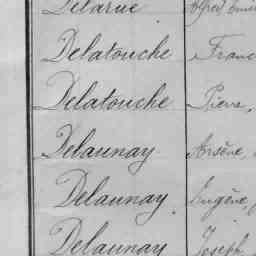 Delarue
Delatouche Franc
Delatouche Pierre,
Delaunay Arsène,
Delaunay Eugène,
Delaunay Joseph